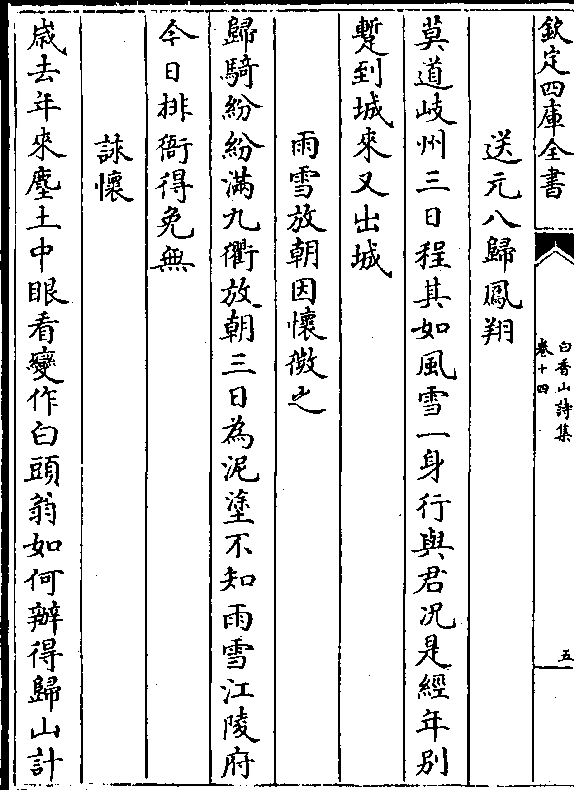 欽定四庫全書
白香山詩集
卷十四
五
送元八歸鳳翔
莫道岐州三日程其如風雪一身行與君况是經年别
蹔到城來又出城
雨雪放朝因懷微之
歸騎紛紛滿九衢放朝三日為泥塗不知雨雪江陵府
今日排衙得免無
詠懷
嵗去年來塵土中眼看變作白頭翁如何辦得歸山計